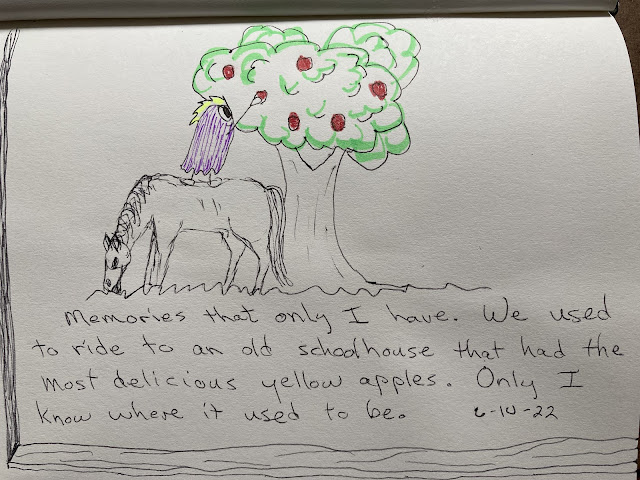 Memories that only I have. We used
to ride to an old schoolhouse that had the
most delicious yellow apples. Only I
know where it used to be. 6-10-22